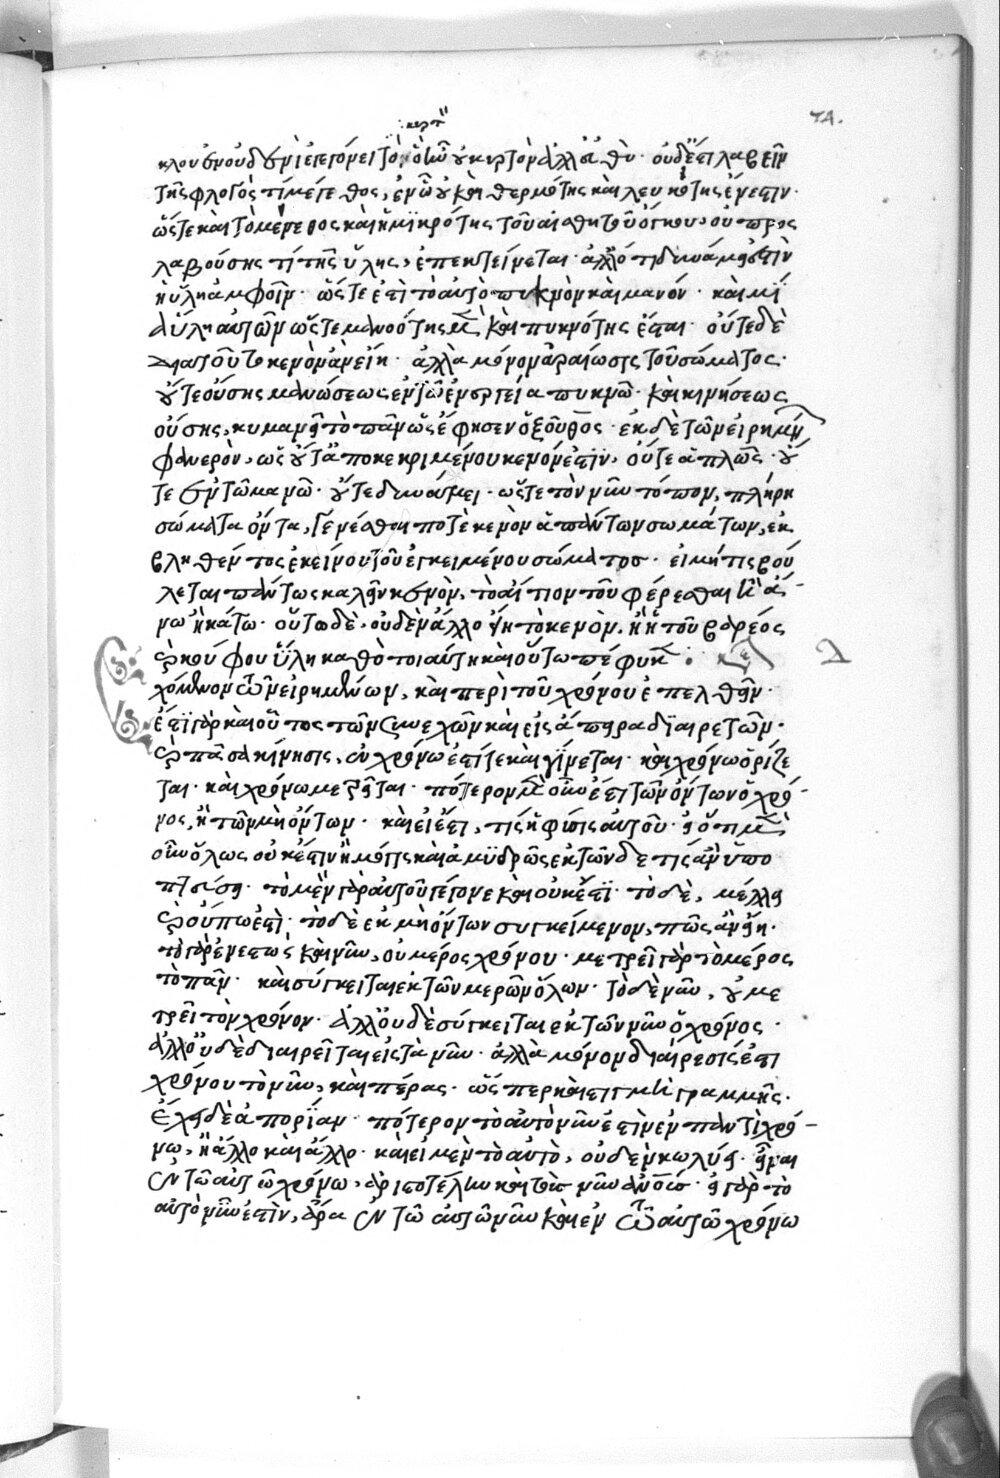 κυρτὸν
74.
κλου ἐν οὐδενὶ ἐγεγόνει τὸ κοῖλον οὐ κυρτὸν ἀλλ' εὐθύ· οὐδέ ἐστι λαβεῖν
τῆς φλογὸς τὶ μέγεθος, ἐν ᾧ οὐ καὶ θερμότης καὶ λευκότης ἔνεστιν·
ὥστε καὶ τὸ μέγεθος καὶ ἡ μικρότης τοῦ αἰσθητοῦ ὄγκου, οὐ προς
λαβούσης τί τῆς ὕλης, ἐπεκτείνεται· ἀλλ' ὅτι δυνάμει ἐστὶν
ἡ ὕλη ἀμφοῖν· ὥστε ἐστὶ τὸ αὐτὸ πυκνὸν καὶ μανόν· καὶ μί
α ὕλη αὐτῶν ὥστε μανότης μὲν καὶ πυκνότης ἔσται· οὔτε δὲ
διὰ τοῦτο κενὸν ἂν εἴη· ἀλλὰ μόνον ἀραίωσις τοῦ σώματος·
οὔτε οὔσης μανώσεως ἐν τῷ ἐνεργείᾳ πυκνῷ· καὶ κινήσεως
οὔσης, κυμανεῖ τὸ πᾶν ὡς ἔφησεν ὁ ξοῦθος· ἐκ δὲ τῶν εἰρημένων
φανερὸν, ὡς οὔτ' ἀποκεκριμένου κενόν ἐστιν, οὔτε ἁπλῶς· οὔ
τε ἐν τῷ μανῷ· οὔτε δυνάμει· ὥστε τὸν νῦν τόπον, πλήρη
σώματα ὄντα, γενέσθαι ποτὲ κενὸν ἁπάντων σωμάτων, ἐκ
βληθέντος ἐκείνου τοῦ ἐγκειμένου σώματος· εἰ μή τις βού
λεται πάντως καλεῖν κενὸν, τὸ αἴτιον τοῦ φέρεσθαι ἢ ἄ-
νω ἢ κάτω· οὕτω δὲ, οὐδὲν ἄλλο ἢ τὸ κενὸν, ἢ ἡ τοῦ βαρέος
καὶ κούφου ὕλη καθὸ τοιαύτη καὶ οὕτω πέφυκεν :
χόμενον τῶν εἰρημένων, καὶ περὶ τοῦ χρόνου ἐπελθεῖν·
ἔστι γὰρ καὶ οὗτος τῶν συνεχῶν καὶ εἰς ἄπειρα διαιρετῶν·
καὶ πᾶσα κίνησις, ἐν χρόνῳ ἐστί τε καὶ γίνεται· καὶ χρόνῳ ὁρίζε
ται· καὶ χρόνῳ μετρεῖται· πότερον μὲν οὖν ἐστι τῶν ὄντων ὁ χρό-
νος, ἢ τῶν μὴ ὄντων· καὶ εἰ ἔστι, τίς ἡ φύσις αὐτοῦ· ὅτι μὲν
οὖν ὅλως οὐκ ἔστιν ἢ μόγις καὶ ἀμυδρῶς ἐκ τῶνδε τις ἂν ὑπο
πτεύσῃ· τὸ μὲν γὰρ αὐτοῦ γέγονε καὶ οὐκ ἔστι· τὸ δὲ, μέλλει
καὶ οὔπω ἐστί· τὸ δὲ ἐκ μὴ ὄντων συγκείμενον, πῶς ἂν εἴη·
τὸ γὰρ ἐνεστὼς καὶ νῦν, οὐ μέρος χρόνου· μετρεῖ γὰρ τὸ μέρος
τὸ πᾶν· καὶ σύγκειται ἐκ τῶν μερῶν ὅλον· τὸ δὲ νῦν, οὐ με
τρεῖ τὸν χρόνον· ἀλλ' οὐδὲ σύγκειται ἐκ τῶν νῦν ὁ χρόνος·
ἀλλ' οὐδὲ διαιρεῖται εἰς τὰ νῦν· ἀλλὰ μόνον διαίρεσίς ἐστι
χρόνου τὸ νῦν, καὶ πέρας· ὥσπερ καὶ στιγμὴ γραμμῆς·
ἔχει δὲ ἀπορίαν· πότερον τὸ αὐτὸ νῦν ἐστὶν ἐν παντὶ χρό-
νῳ, ἢ ἄλλο καὶ ἄλλο· καὶ εἰ μὲν τὸ αὐτὸ, οὐδὲν κωλύει· εἶναι
ἐν τῷ αὐτῷ χρόνῳ, ἀριστοτέλην καὶ τοὺς νῦν ὄντας· εἰ γὰρ τὸ
αὐτὸ νῦν ἐστὶν, ἄρα ἐν τῷ αὐτῷ νῦν καὶ ἐν τῷ αὐτῷ χρόνῳ